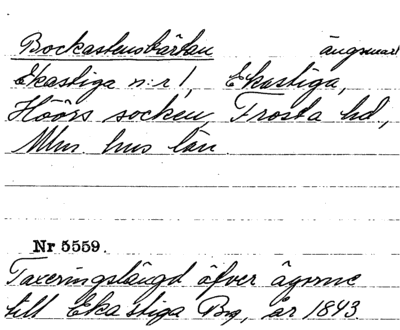 Bockastenskärkan ängsmark
Ekastiga n:r 1, Ekastiga,
Höörs socken, Frosta hd,
Mlm. hus län.
Nr 5559.
Taxeringslängd öfver ägorne
till Ekastiga By, år 1843.